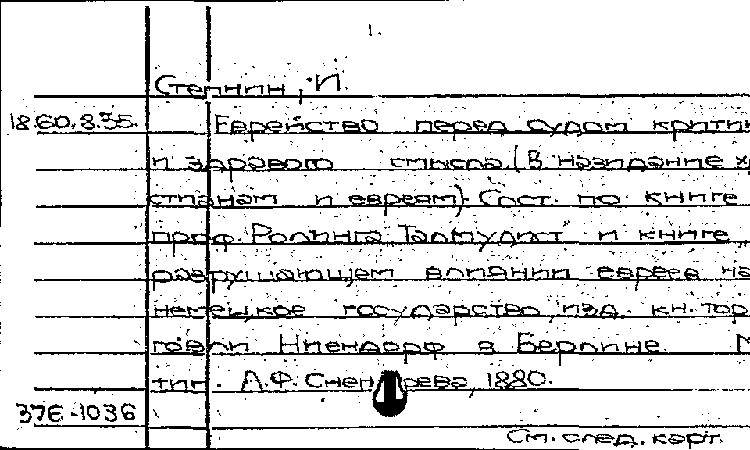 1.
Степнин, И.
18.60.8.35. Еврейство перед судом крити
и здравого смысла (В назидание х
стианам и евреям). Сост. по книге
проф. Ролинга "Талмудист" и книге
разрушающем влиянии евреев на
немецкое государство, изд. кн. тор
говли Ниендорф в Берлине. М
тип. А.Ф. Снегирева, 1880.
37Е-1036
См. след. карт.